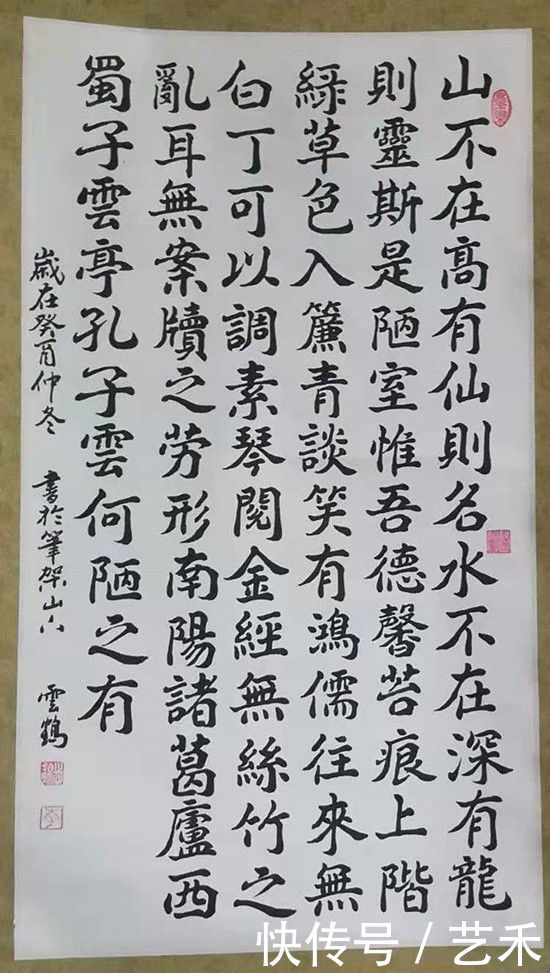 山不在高有仙則名水不在深有龍
則靈斯是陋室惟吾德馨苔痕上階
緑草色入簾青談笑有鴻儒往來無
白丁可以調素琴閱金經無絲竹之
亂耳無案牘之劳形南陽諸葛廬西
蜀子雲亭孔子雲何陋之有
歲在癸酉仲冬 書於筆架山下 雲鶴
快传号 / 艺禾